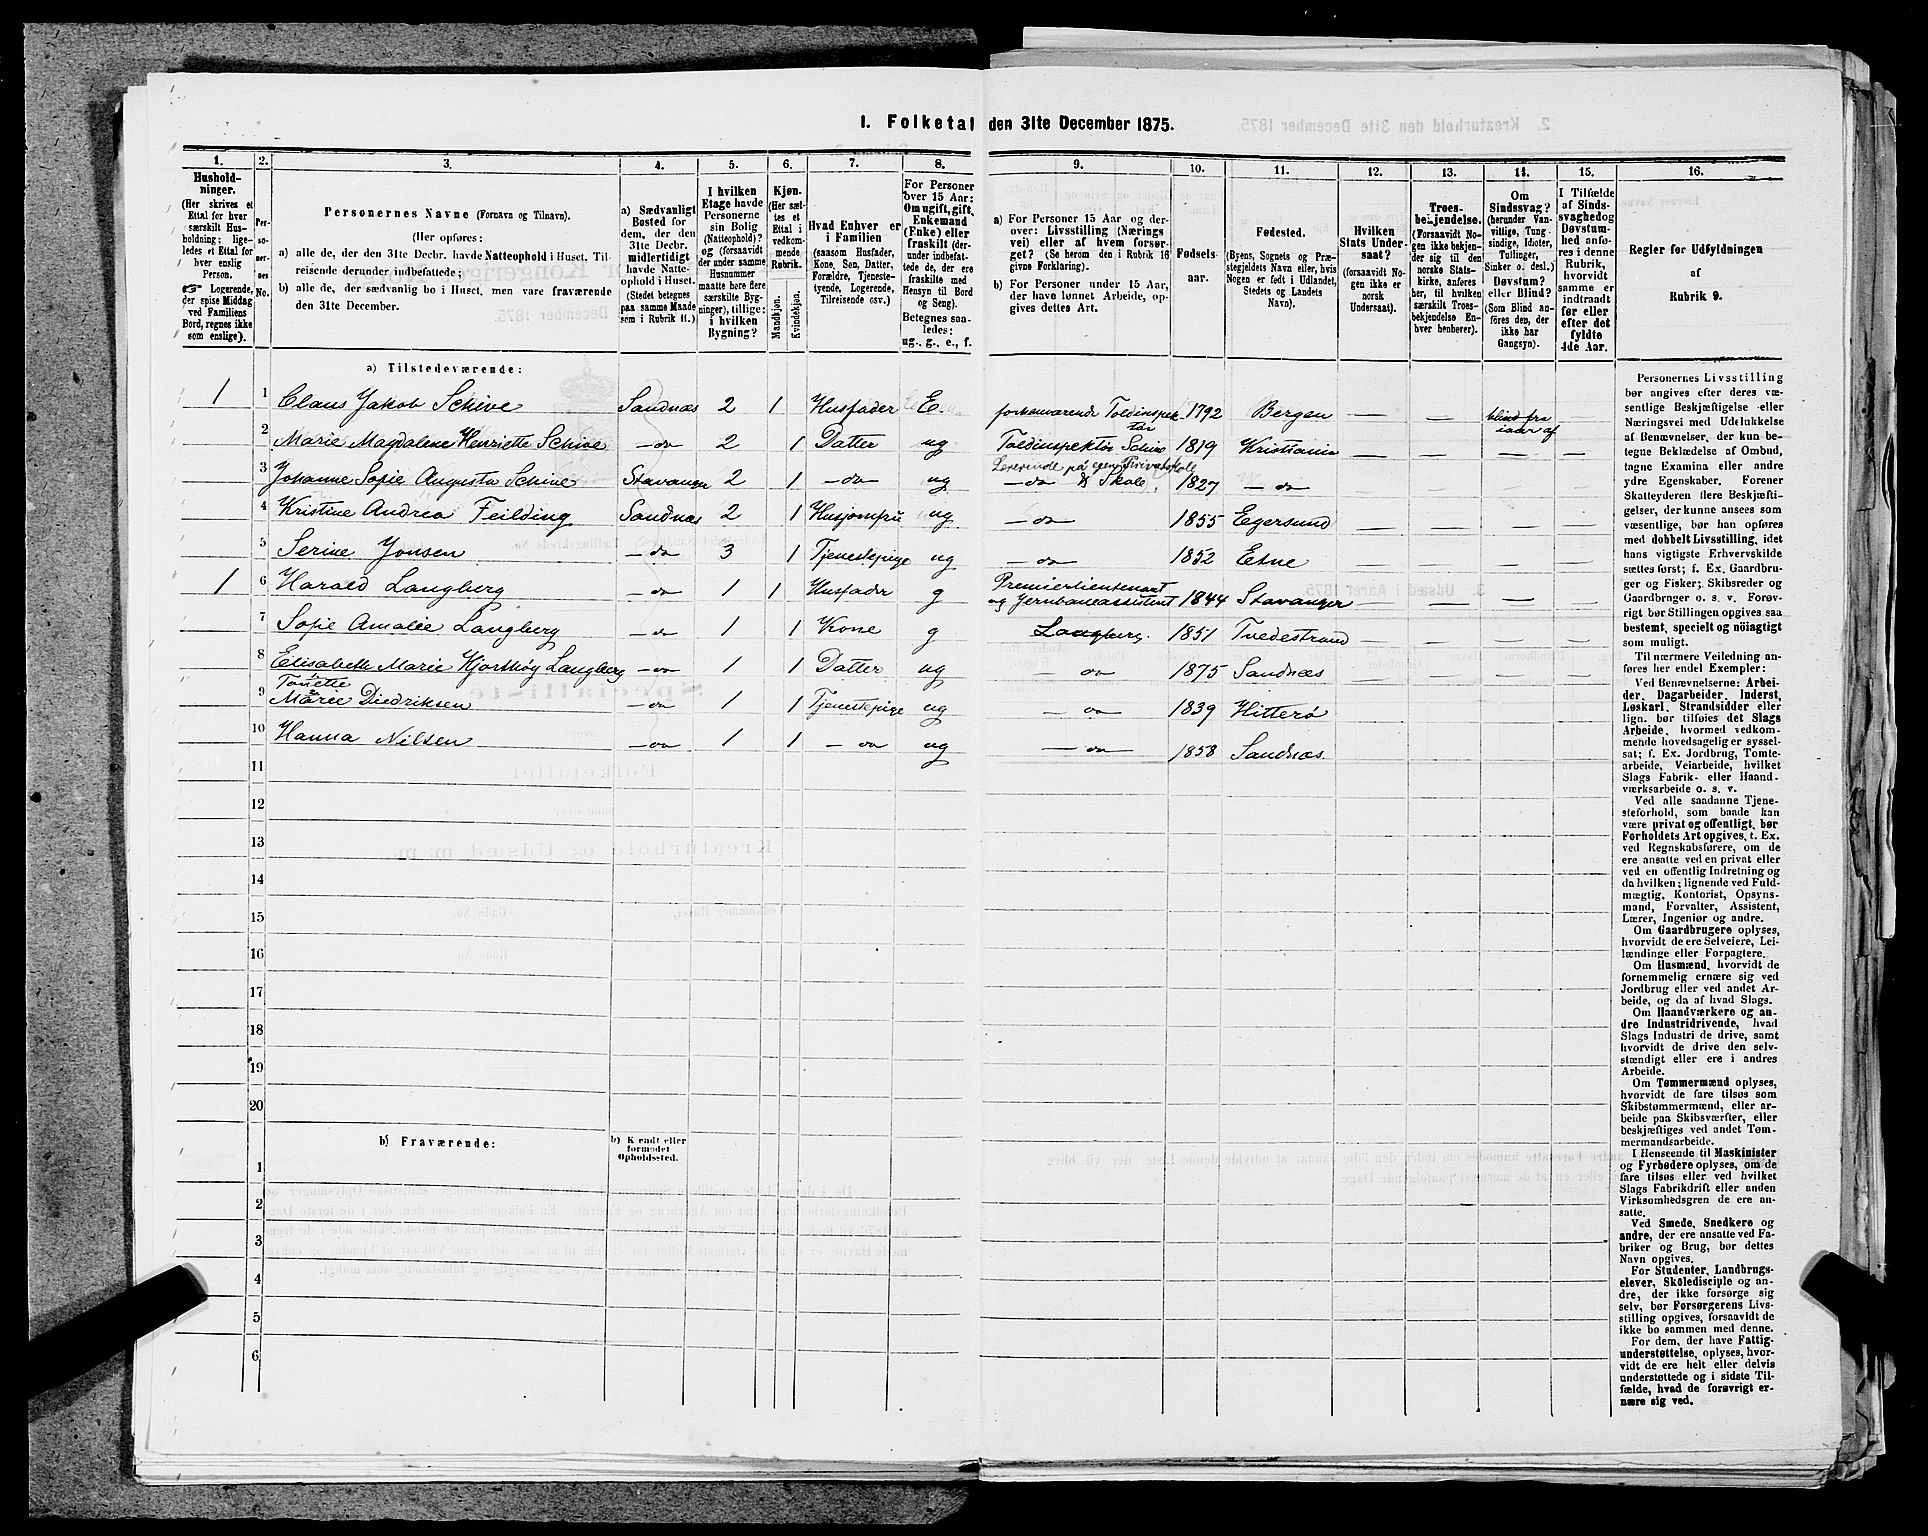 1. Folketal den 31te December 1875.
1. 2. 3. 4. 5. 6. 7. 8. 9. 10. 11. 12. 13. 14. 15. 16.
Hushold-
ninger.
(Her skrives et
Ettal for hver
særskilt Hus-
holdning; lige-
ledes et Ettal for
hver enslig
Person.
Logerende,
der spise Middag
ved Familiens
Bord, regnes ikke
som enslige).
Per-
so-
ner-
nes
No.
Personernes Navne (Fornavn og Tilnavn).
(Her opføres:
a) alle de, der den 31te Decbr. havde Natteophold i Huset, Til-
reisende derunder indbefattede;
b) alle de, der sædvanlig bo i Huset, men vare fraværende
den 31te December.
a) Sædvanligt
Bosted for
dem, der den
31te Decbr.
midlertidigt
havde Natte-
ophold i Huset.
(Stedet betegnes
paa samme Maade
som i Rubrik 11.)
I hvilken
Etage havde
Personerne
sin Bolig
(Natteophold)?
og (forsaavidt
der under samme
Husnummer
maatte høre flere
særskilte Byg-
ninger), tillige:
i hvilken
Bygning?
Kjøn.
(Her sæt-
tes et
Ettal i
vedkom-
mende
Rubrik.
Mandkjøn.
Kvindekjøn.
Hvad Enhver er
i Familien
(saasom Husfader,
Kone, Søn, Datter,
Forældre, Tjeneste-
tyende, Logerende,
Tilreisende osv.)
For Personer
over 15 Aar:
Om ugift, gift,
Enkemand
(Enke) eller
fraskilt (der-
under indbefat-
tede de, der ere
fraskilte med
Hensyn til Bord
og Seng).
Betegnes saa-
ledes:
ug., g., e., f.
a) For Personer 15 Aar og der-
over: Livsstilling (Nærings
vei) eller af hvem forsør-
get? (Se herom den i Rubrik 16
givne Forklaring).
b) For Personer under 15 Aar,
der have lønnet Arbeide, op-
gives dettes Art.
Fødsels-
aar.
Fødested.
(Byens, Sognets og Præ-
stegjeldets Navn eller, hvis
Nogen er født i Udlandet,
Stedets og Landets
Navn).
I hvilken
Stats Under-
saat?
(forsaavidt No-
gen ikke er
norsk
Undersaat).
Troes-
bekjendelse.
(Forsaavidt No-
gen ikke bekjen-
der sig til den
norske Stats-
kirke, anføres
her, til hvilken
særskilt Troes-
bekjendelse En-
hver henhører).
Om
Sindssvag?
(herunder Van-
vittige, Tung
sindige, Idioter,
Tullinger,
Sinker o. desl.)
Døvstum?
eller Blind?
(Som Blind an-
føres den, der
ikke har
Gangsyn).
I Tilfælde
af Sinds-
svaghed og
Døvstum-
hed anfø-
res i denne
Rubrik,
hvorvidt
samme er
indtraadt
før eller
efter det
fyldte
4de Aar.
Regler før Udfyldningen
af
Rubrik 9.
a) Tilstedeværende:
1 1 Claus Jakob Schive Sandnæs 2 1 Husfader E. forhenværende Toldinspek- 1792 Bergen — — blind fra
tør
2 Marie Magdalene Henriette Schive — do 2 1 Datter ug Toldinspektør Schive 1819 Kristiania
Lærerinde på egen Privatskole
3 Johanne Sofie Augusta Schive Stavanger 2 1 — do ug — do & Skole 1827 — do
4 Kristine Andrea Feilding Sandnæs 2 1 Husjomfru ug — do 1855 Egersund — — — —
5 Serine Jonsen — do 3 1 Tjenestepige ug — do 1852 Etne — — — —
1 6 Harald Langberg — do 1 1 Husfader g Premierlieutenant
og Jernbaneassistent 1844 Stavanger — — — —
7 Sofie Amalie Langberg — do 1 1 Kone g Langberg. 1851 Tvedestrand — — — —
8 Elisabeth Marie Hjorthøy Langberg — do 1 1 Datter ug — do 1875 Sandnæs — — — —
Tonette
9 Marie Diedriksen — do 1 1 Tjenestepige ug — do 1839 Hitterø — — — —
10 Hanna Nilsen — do 1 1 — do ug — do 1858 Sandnæs. — — — —
11
12
13
14
15
16
17
18
19
20
b) Fraværende:
b) Kjendt eller
formodet
Opholdssted.
1
2
3
4
5
6
Personernes Livsstilling
bør angives efter deres væ-
sentlige Beskjæftigelse eller
Næringsvei med Udelukkelse
af Benævnelser, der kun be-
tegne Beklædelse af Ombud,
tagne Examina eller andre
ydre Egenskaber. Forener
Skatteyderen flere Beskjæfti-
gelser, der kunne ansees som
væsentlige, bør han opføres
med dobbelt Livsstilling, idet
hans vigtigste Erhvervskilde
sættes først; f. Ex. Gaardbru-
ger og Fisker; Skibsreder og
Gaardbruger o. s. v. Forøv-
rigt bør Stillingen opgives saa
bestemt, specielt og nøiagtigt
som muligt.
Til nærmere Veiledning an-
føres her endel Exempler:
Ved Benævnelserne: Arbei-
der, Dagarbeider, Inderst,
Løskarl, Strandsidder eller
lign. bør tilføies det Slags
Arbeide, hvormed vedkom-
mende hovedsagelig er syssel-
sat; f. Ex. Jordbrug, Tomte-
arbeide, Veiarbeide, hvilket
Slags Fabrik- eller Haand-
værksarbeide o. s. v.
Ved alle saadanne Tjene-
steforhold, som baade kan
være privat og offentligt, bør
Forholdets Art opgives, t. Ex.
ved Regnskabsførere, om de
ere ansatte ved en privat eller
ved en offentlig Indretning og
da hvilken; lignende ved Fuld-
mægtig, Kontorist, Opsyns-
mand, Forvalter, Assistent,
Lærer, Ingeniør og andre.
Om Gaardbrugere oplyses,
hvorvidt de ere Selveiere, Lei-
lændinge eller Forpagtere.
Om Husmænd, hvorvidt de
fornemmelig ernære sig ved
Jordbrug eller ved andet Ar-
beide, og da af hvad Slags.
Om Haandværkere og an-
dre Industridrivende, hvad
Slags Industri de drive, samt
hvorvidt de drive den selv-
stændigt eller ere i andres
Arbeide.
Om Tømmermænd oplyses,
hvorvidt de fare tilsøs som
Skibstømmermænd, eller ar-
beide paa Skibsværfter, eller
beskjæftiges ved andet Tøm-
mermandsarbeide.
I Henseende til Maskinister
og Fyrbødere oplyses, om de
fare tilsøs eller ved hvilket
Slags Fabrikdrift eller anden
Virksomhedsgren de ere an-
satte.
Ved Smede, Snedkere og
andre, der ere ansatte ved Fa-
briker og Brug, bør dettes
Navn opgives.
For Studenter, Landbrugs-
elever, Skoledisciple og an-
dre, der ikke forsørge sig
selv, bør Forsørgerens Livs-
stilling opgives, forsaavidt de
ikke bo sammen med denne.
For dem, der have Fattig-
understøttelse, oplyses, hvor-
vidt de ere helt eller delvis
understøttede og i sidste Til-
fælde, hvad de forøvrigt er-
nære sig ved.